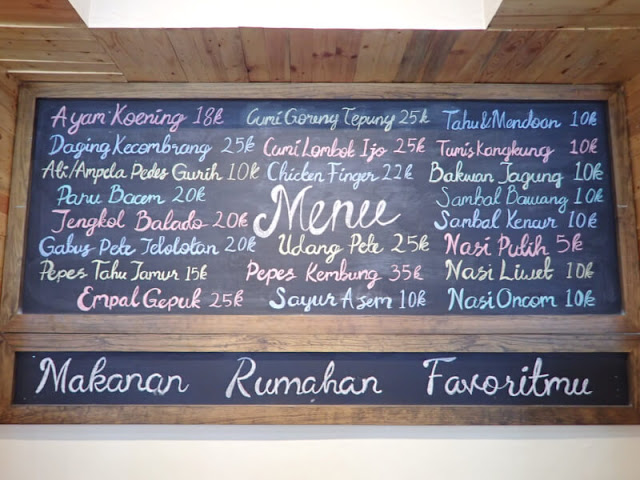 Ayam Koening 18k
Daging Kecombrang 25k
Ati/Ampela Pedes Gurih 10k
Paru Bacem 20k
Jengkol Balado 20k
Gabus Pete Jelolotan 20k
Pepes Tahu Jamur 15k
Empal Gepuk 25k
Cumi Goreng Tepung 25k
Cumi Lombok Ijo 25k
Chicken Finger 22k
Menu
Udang Pete 25k
Pepes Kembung 35k
Sayur Asem 10k
Tahu & Mendoan 10k
Tumis Kangkung 10k
Bakwan Jagung 10k
Sambal Bawang 10k
Sambal Kencur 10k
Nasi Putih 5k
Nasi Liwet 10k
Nasi Oncom 10k
Makanan Rumahan Favoritmu